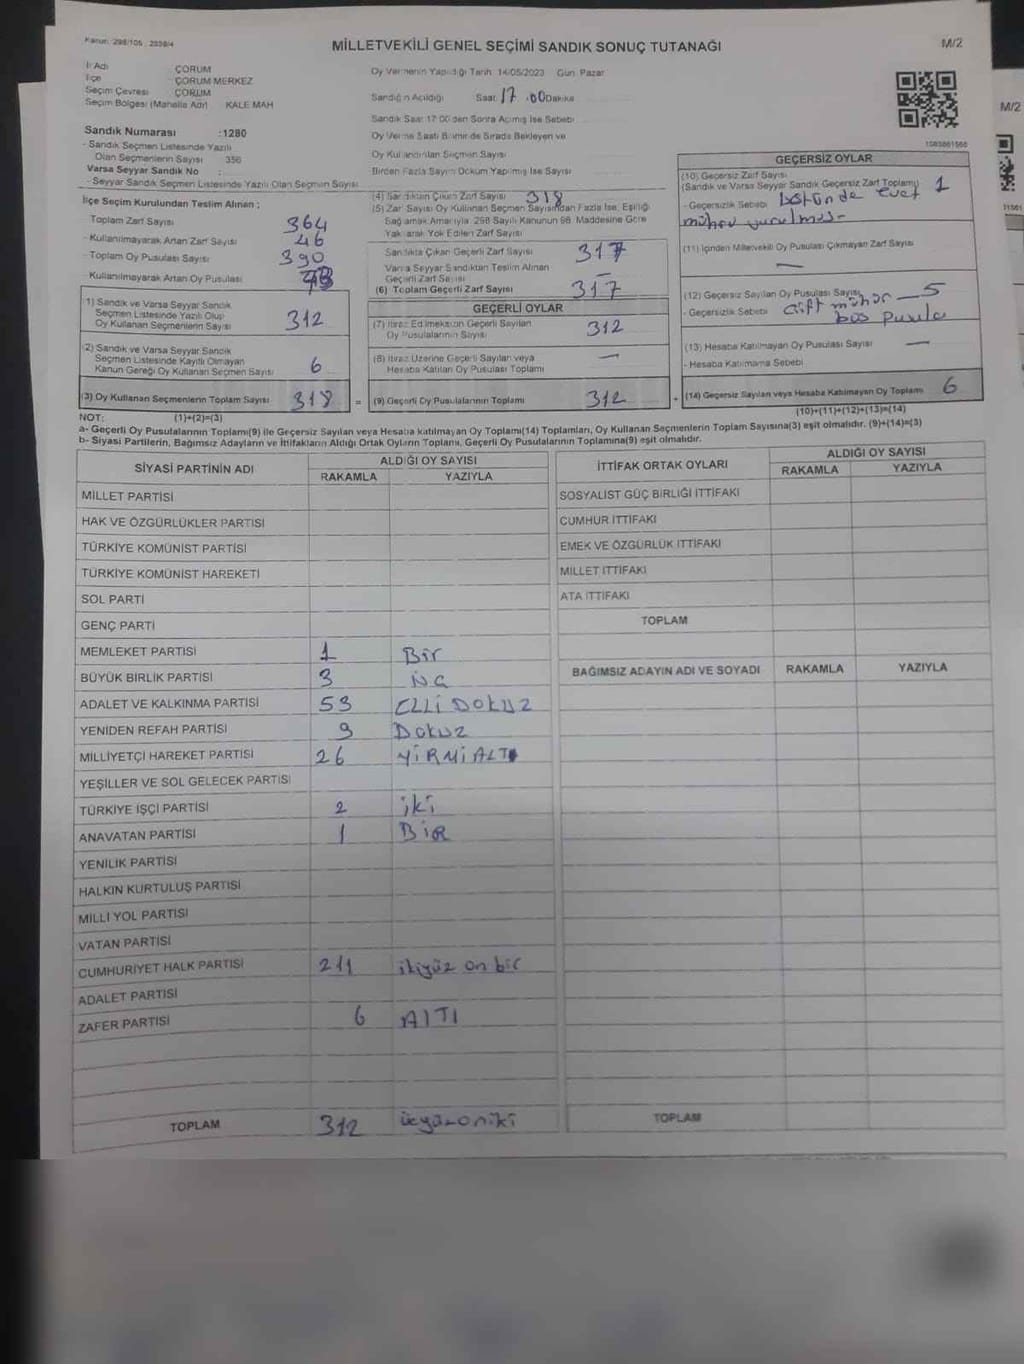 Kanun: 298/105, 2839/4
MİLLETVEKİLİ GENEL SEÇİMİ SANDIK SONUÇ TUTANAĞI
M/2
İl Adı ÇORUM
İlçe ÇORUM MERKEZ
Seçim Çevresi ÇORUM
Seçim Bölgesi (Mahalle Adı) KALE MAH
Sandık Numarası :1280
- Sandık Seçmen Listesinde Yazılı
Olan Seçmenlerin Sayısı 356
Varsa Seyyar Sandık No :
- Seyyar Sandık Seçmen Listesinde Yazılı Olan Seçmen Sayısı
Oy Vermenin Yapıldığı Tarih 14/05/2023 Gün Pazar
Sandığın Açıldığı Saat 17 .00 Dakika
Sandık Saat 17:00'den Sonra Açılmış İse Sebebi
Oy Verme Saati Bitimi'de Sırada Bekleyen ve
Oy Kullandırılan Seçmen Sayısı
Birden Fazla Sayım Döküm Yapılmış İse Sayısı
M/2
İlçe Seçim Kurulundan Teslim Alınan ;
Toplam Zarf Sayısı 364
- Kullanılmayarak Artan Zarf Sayısı 46
- Toplam Oy Pusulası Sayısı 390
- Kullanılmayarak Artan Oy Pusulası
1) Sandık ve Varsa Seyyar Sandık
Seçmen Listesinde Yazılı Olup
Oy Kullanan Seçmenlerin Sayısı 312
2) Sandık ve Varsa Seyyar Sandık
Seçmen Listesinde Kayıtlı Olmayan
Kanun Gereği Oy Kullanan Seçmen Sayısı 6
(3) Oy Kullanan Seçmenlerin Toplam Sayısı 318 =
(4) Sandıktan Çıkan Zarf Sayısı 318
(5) Zarf Sayısı Oy Kullanan Seçmen Sayısından Fazla İse, Eşitliği
Sağlamak Amacıyla, 298 Sayılı Kanunun 98. Maddesine Göre
Yakılarak Yok Edilen Zarf Sayısı
Sandıkta Çıkan Geçerli Zarf Sayısı 317
Varsa Seyyar Sandıktan Teslim Alınan
Geçerli Zarf Sayısı —
(6) Toplam Geçerli Zarf Sayısı 317
GEÇERLİ OYLAR
(7) İtiraz Edilmeksizin Geçerli Sayılan
Oy Pusulalarının Sayısı 312
(8) İtiraz Üzerine Geçerli Sayılan veya
Hesaba Katılan Oy Pusulası Toplamı —
(9) Geçerli Oy Pusulalarının Toplamı 312 +
GEÇERSİZ OYLAR
(10) Geçersiz Zarf Sayısı
(Sandık ve Varsa Seyyar Sandık Geçersiz Zarf Toplamı) 1
- Geçersizlik Sebebi üstünde evet
mühov vurulmuş-
(11) İçinden Milletvekili Oy Pusulası Çıkmayan Zarf Sayısı
—
(12) Geçersiz Sayılan Oy Pusulası Sayısı 5
- Geçersizlik Sebebi Çift mühür
boş pusula
(13) Hesaba Katılmayan Oy Pusulası Sayısı —
- Hesaba Katılmama Sebebi
(14) Geçersiz Sayılan veya Hesaba Katılmayan Oy Toplamı 6
NOT: (1)+(2)=(3)
(10)+(11)+(12)+(13)=(14)
a- Geçerli Oy Pusulalarının Toplamı(9) ile Geçersiz Sayılan veya Hesaba katılmayan Oy Toplamı(14) Toplamları, Oy Kullanan Seçmenlerin Toplam Sayısına(3) eşit olmalıdır. (9)+(14)=(3)
b- Siyasi Partilerin, Bağımsız Adayların ve İttifakların Aldığı Ortak Oyların Toplamı, Geçerli Oy Pusulalarının Toplamına(9) eşit olmalıdır.
SİYASİ PARTİNİN ADI ALDIĞI OY SAYISI
RAKAMLA YAZIYLA
MİLLET PARTİSİ
HAK VE ÖZGÜRLÜKLER PARTİSİ
TÜRKİYE KOMÜNİST PARTİSİ
TÜRKİYE KOMÜNİST HAREKETİ
SOL PARTİ
GENÇ PARTİ
MEMLEKET PARTİSİ 1 Bir
BÜYÜK BİRLİK PARTİSİ 3 üç
ADALET VE KALKINMA PARTİSİ 53 ELLİ DOKUZ
YENİDEN REFAH PARTİSİ 9 Dokuz
MİLLİYETÇİ HAREKET PARTİSİ 26 YİRMİ ALTI
YEŞİLLER VE SOL GELECEK PARTİSİ
TÜRKİYE İŞÇİ PARTİSİ 2 iki
ANAVATAN PARTİSİ 1 BİR
YENİLİK PARTİSİ
HALKIN KURTULUŞ PARTİSİ
MİLLİ YOL PARTİSİ
VATAN PARTİSİ
CUMHURİYET HALK PARTİSİ 211 ikiyüz on bir
ADALET PARTİSİ
ZAFER PARTİSİ 6 ALTI
TOPLAM 312 üçyüzoniki
İTTİFAK ORTAK OYLARI ALDIĞI OY SAYISI
RAKAMLA YAZIYLA
SOSYALİST GÜÇ BİRLİĞİ İTTİFAKI
CUMHUR İTTİFAKI
EMEK VE ÖZGÜRLÜK İTTİFAKI
MİLLET İTTİFAKI
ATA İTTİFAKI
TOPLAM
BAĞIMSIZ ADAYIN ADI VE SOYADI RAKAMLA YAZIYLA
TOPLAM